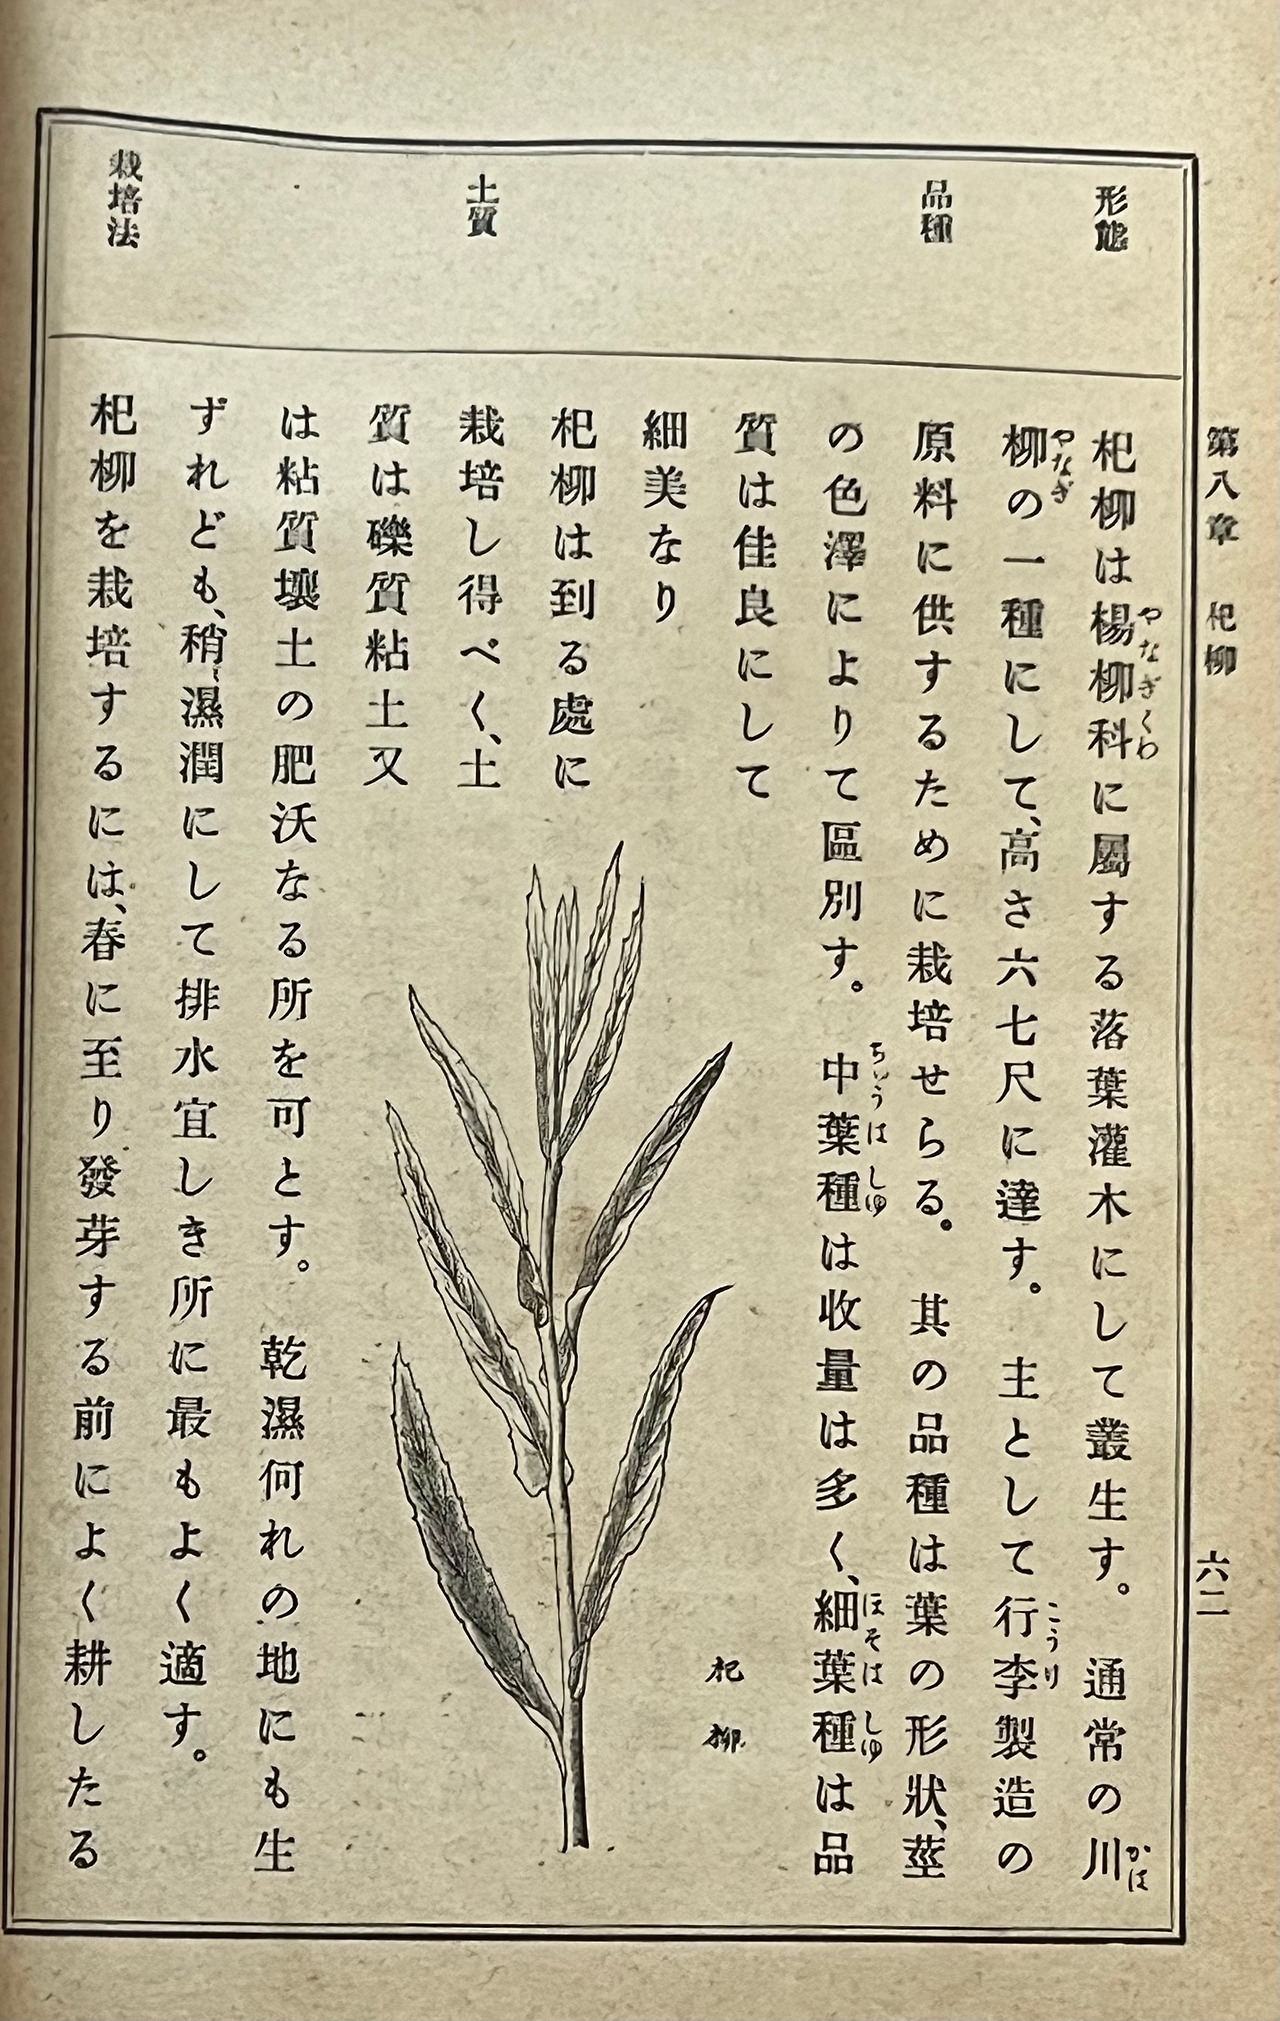 第八章　杞柳
六二
形態
品種
土質
栽培法
杞柳は楊柳科に屬する落葉灌木にして叢生す。　通常の川
やなぎくわ
かは
柳の一種にして、高さ六七尺に達す。　主として行李製造の
やなぎ
こうり
原料に供するために栽培せらる。　其の品種は葉の形狀、莖
の色澤によりて區別す。　中葉種は收量は多く、細葉種は品
ちゆうはしゆ
ほそはしゆ
質は佳良にして
細美なり
杞柳は到る處に
栽培し得べく、土
質は礫質粘土又
は粘質壤土の肥沃なる所を可とす。　乾濕何れの地にも生
ずれども、稍〻濕潤にして排水宜しき所に最もよく適す。
杞柳を栽培するには、春に至り發芽する前によく耕したる
杞柳